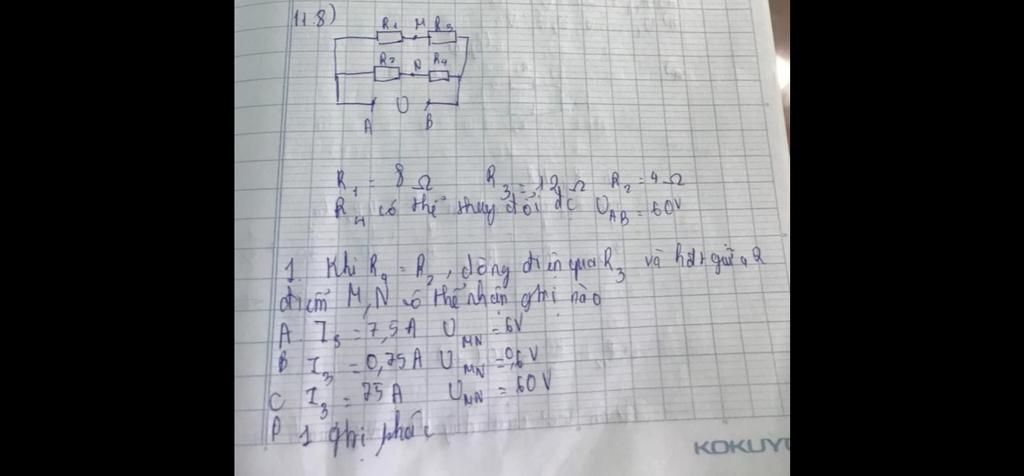 11.8)
R1 M R3
R2 N R4
U
A B
R1 = 8 Ω R3 = 12 Ω R2 = 4 Ω
R4 có thể thay đổi đc UAB = 60V
1. Khi R4 = R2, dòng điện qua R3 và hđt giữa 2
điểm M, N có thể nhận ghị nào
A I3 = 7,5A UMN = 6V
B I3 = 0,75A UMN = 0,6V
C I3 = 75A UMN = 60V
D 1 ghị
KOKUY